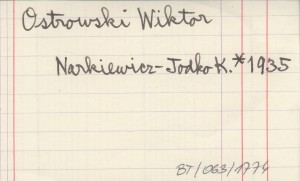 Ostrowski Wiktor
Narkiewicz-Jodko K. *1935
BT/063/1774